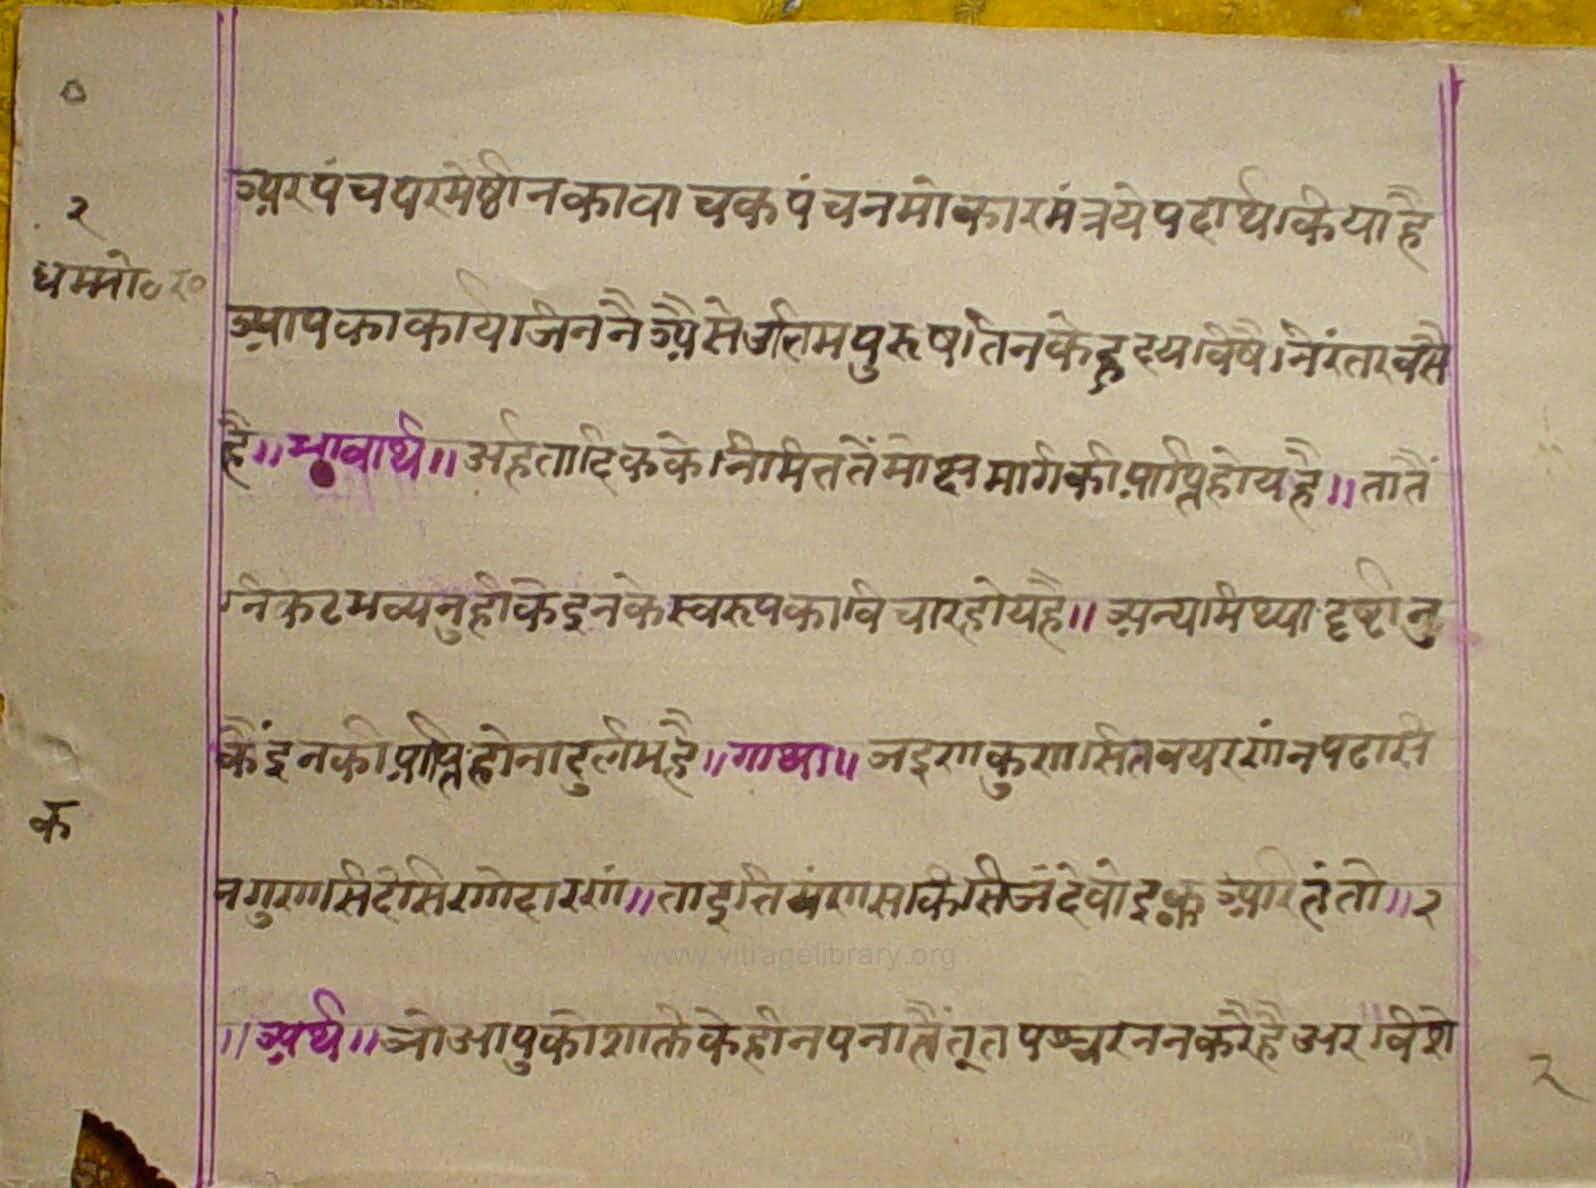 २
धम्मो० र०
अर पंच परमेष्ठीनका वाचक पंच नमोकार मंत्र ये पदार्थ किया है
आपका कार्य जिननै अैसे उत्तम पुरूष तिनके हृदय विषै निरंतर वसै
है॥ भावार्थ॥ अर्हंतादिकके निमित्त तैं मोक्ष मार्गकी प्राप्ति होय है॥ तातैं
निकट भव्यनुहीके इनके स्वरूपका विचार होय है॥ अन्य मिथ्यादृष्टीनु
कैं इनकी प्राप्ति होना दुर्लभ है॥ गाथा॥ जइ ण कुणसि तवयरणं न पढसि
न गुणसि देसि णो दाणं॥ ता इत्तियं ण सक्किसि जं देवो इक्क अरिहंतो॥ २
॥ अर्थ॥ जो आपुको शक्तिके हीनपना तैं तू तपश्चरन न करै है अर विशे
क
www.vitragelibrary.org
२